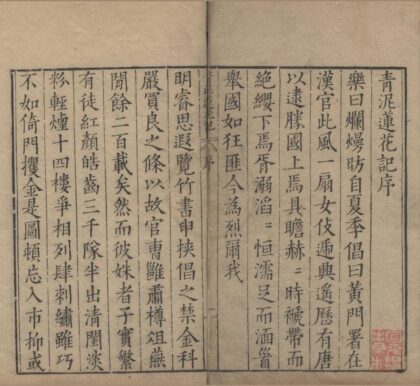 青泥蓮花記序
樂曰爛熳昉自夏季倡曰黃門署在
漢官此風一扇女伎遞興遥歷有唐
以逮勝國上焉具瞻赫〻時褫帶而
絶纓下焉胥溺滔〻恒濡足而湎
舉國如狂匪今為烈爾我
明睿思遐覽竹書申挾倡之禁金科
嚴買良之條以故官曹雖肅樽俎燕
閒餘二百載矣然而彼姝者子實繁
有徒紅顏皓齒三千隊半出清閨淡
粉輕煙十四樓爭相列肆刺繡雖巧
不如倚門攫金是圖頓忘入市抑或